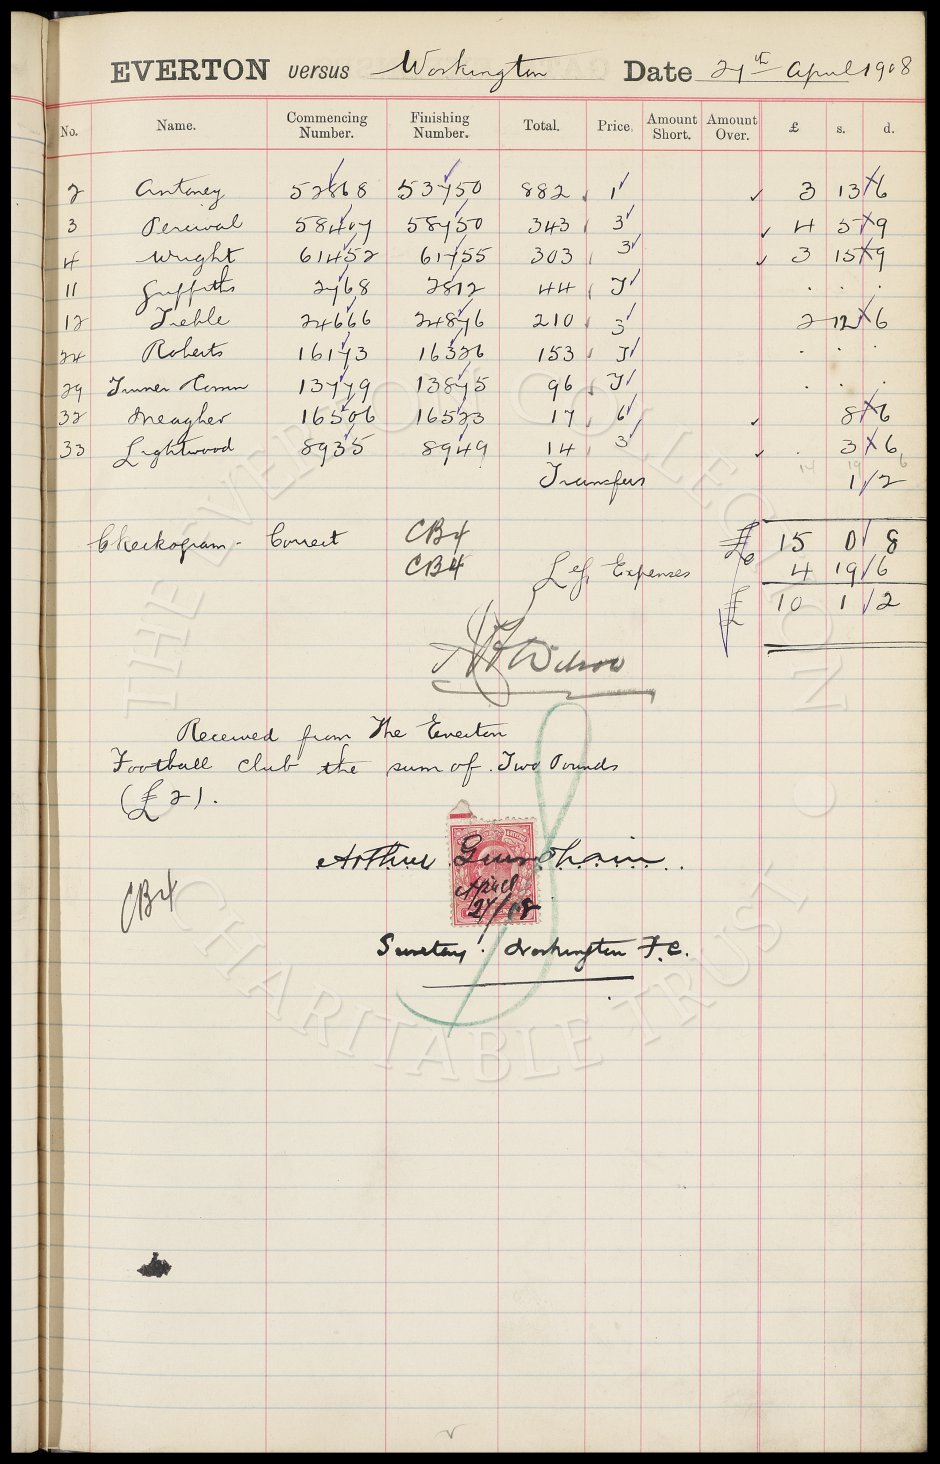 EVERTON versus Workington Date 27th April 1908
No. Name. Commencing Number. Finishing Number. Total. Price. Amount Short. Amount Over. £ s. d.
2 Antoney 52868 53750 882 1 3 13 6
3 Percival 58407 58750 343 3 4 5 9
4 Wright 61452 61755 303 3 3 15 9
11 Griffiths 2768 2812 44 T . . .
12 Treble 24666 24876 210 3 2 12 6
24 Roberts 16173 16326 153 T . . .
29 Turner 13779 13875 96 T . . .
32 Meagher 16506 16523 17 6 8 6
33 Lightwood 8935 8949 14 3 . 3 6
14 19 6
Transfers 1 2
Checkogram - Correct CB4 £ 15 0 8
CB4 Less Expenses 4 19 6
£ 10 1 2
Wilson
Received from The Everton
Football Club the sum of Two Pounds
(£2).
Arthur
April
27/08
CB4
Secretary Workington F.C.
THE EVERTON COLLECTION
CHARITABLE TRUST